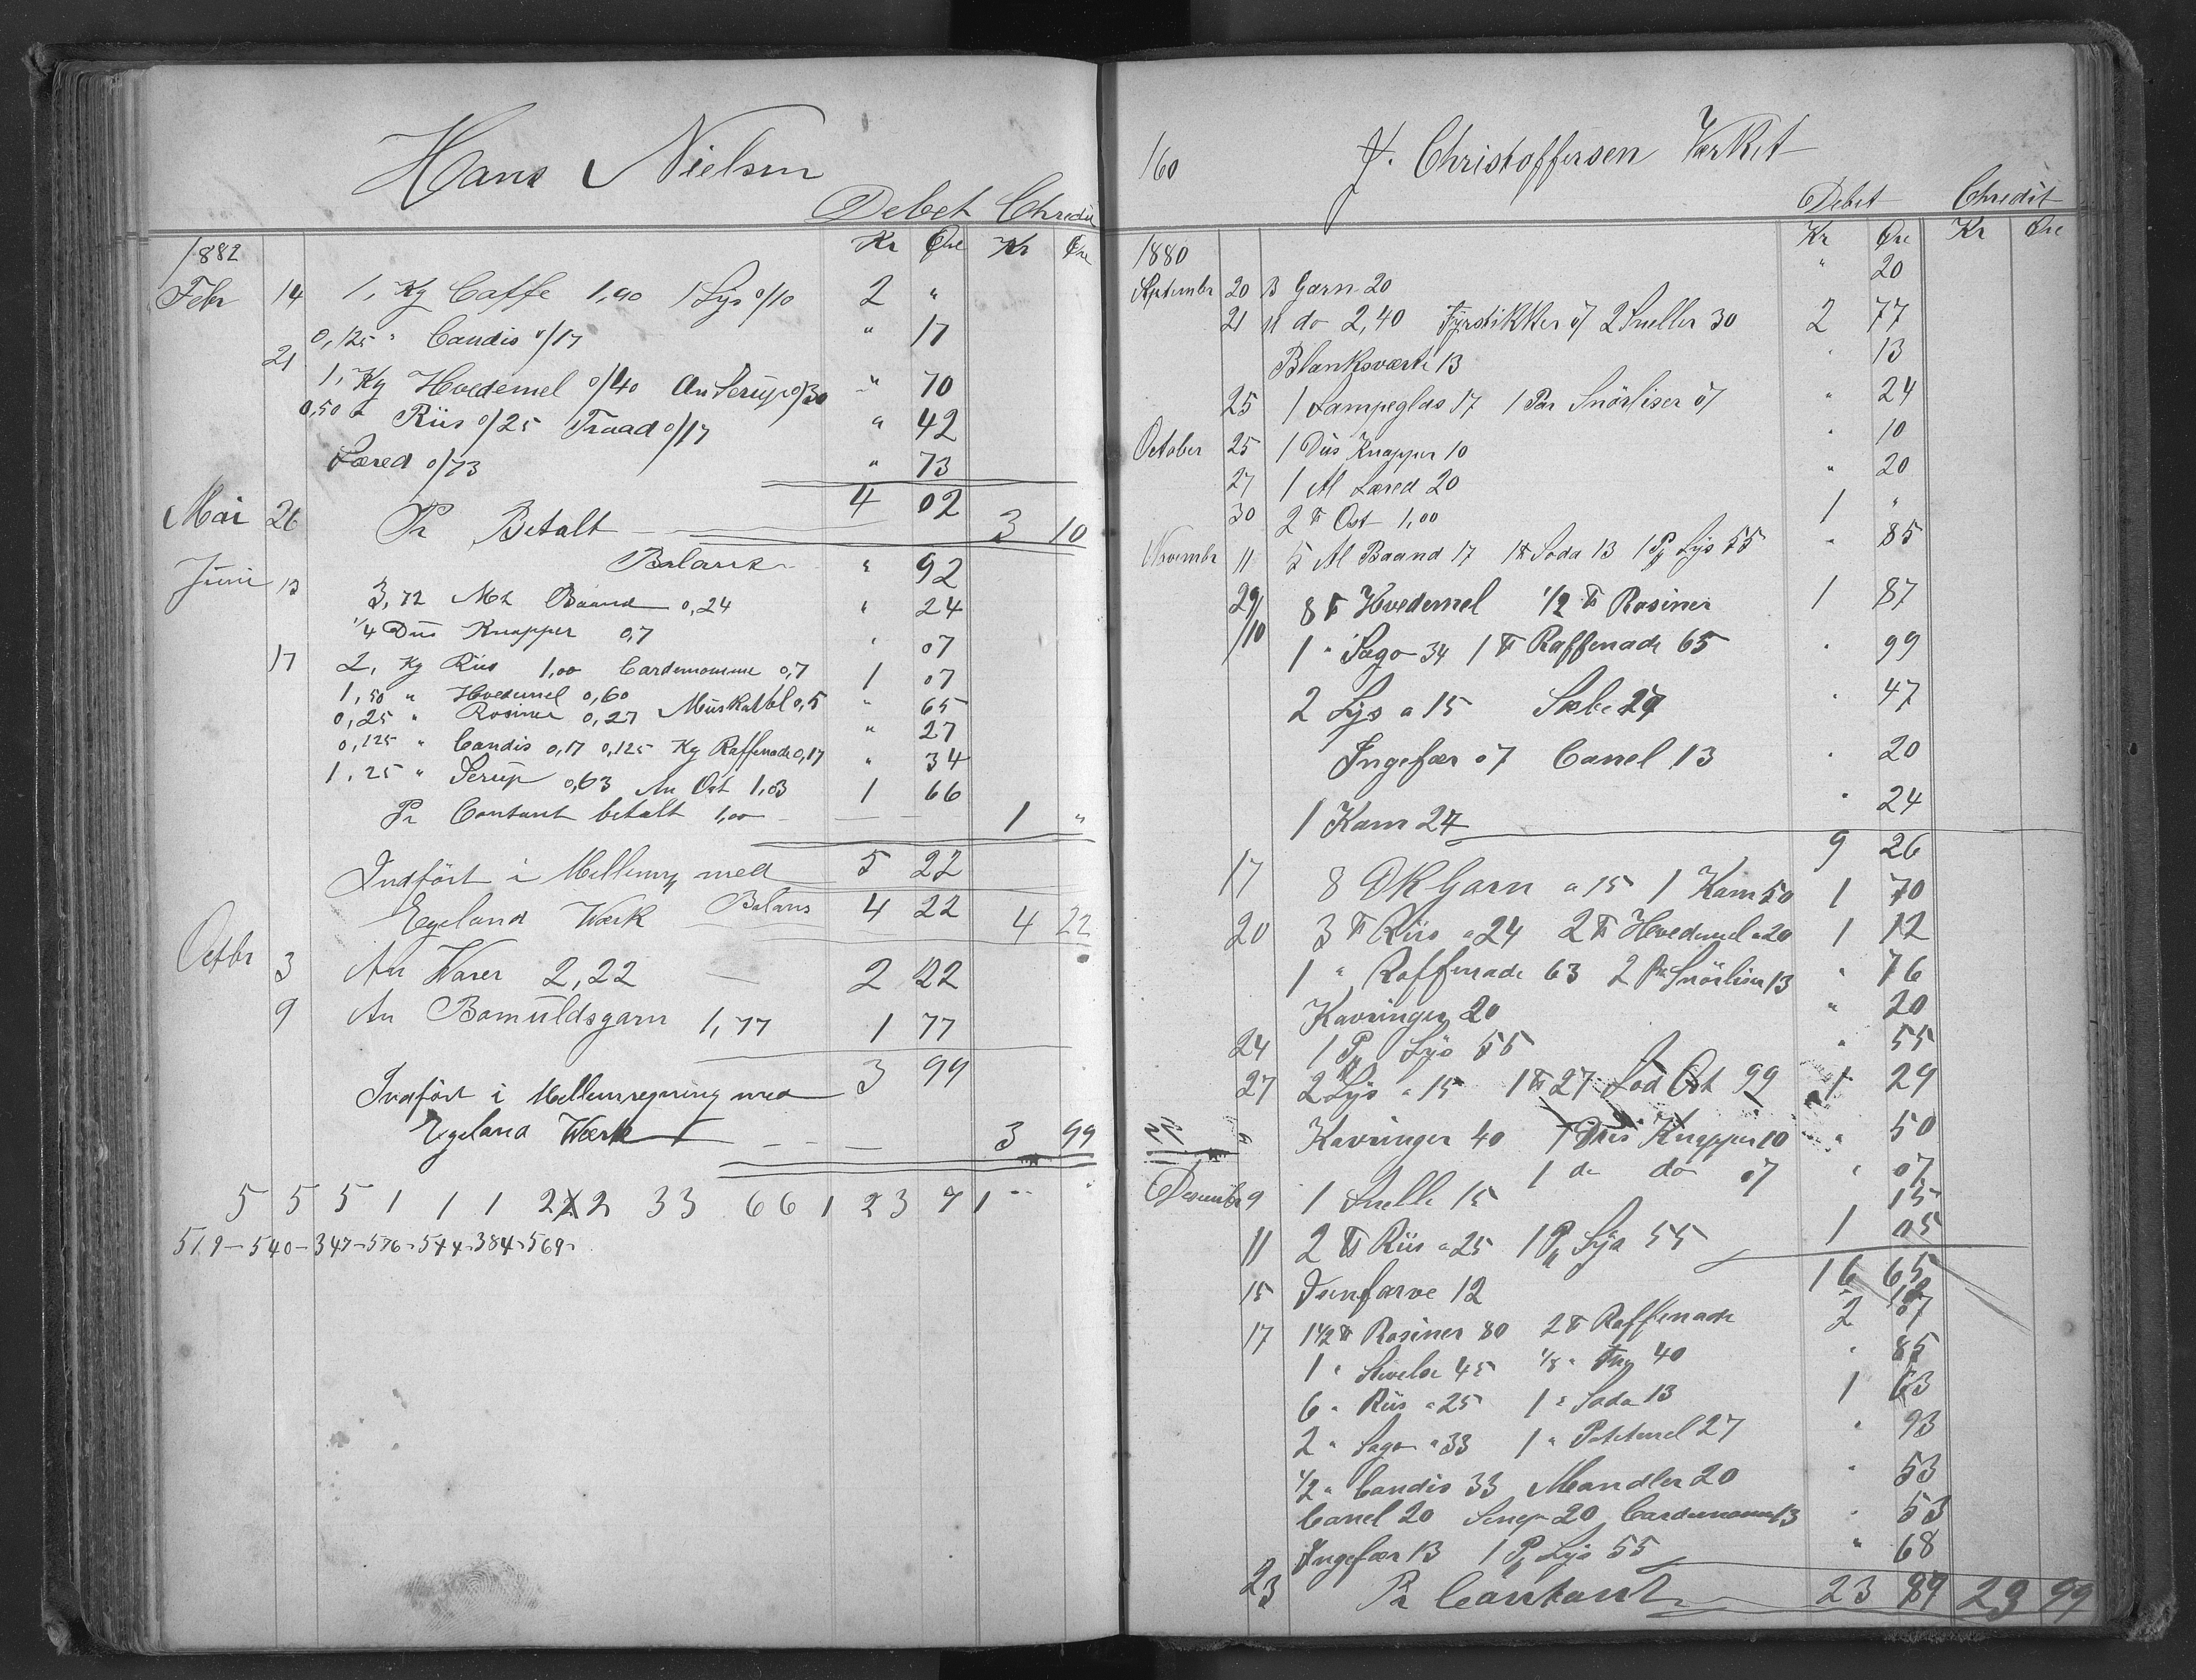 Hans Nielsen
Debet Chredit
1882 Kr Øre Kr Øre
Febr 14 1, Kg Caffe 1,90 1 Lys 0/10 2 "
0,125 " Candis 0/17 " 17
21 1, Kg Hvedemel 0/40 An Serup 0/30 " 70
0,50 " Riis 0/25 Traad 0/17 " 42
Læred 0/73 " 73
4 02
Mai 26 Pr Betalt 3 10
Balans " 92
Juni 13 3,72 Mt Baand 0,24 " 24
1/4 Dus Knapper 0,7 " 07
17 2, Kg Riis 1,00 Cardemomme 0,7 1 07
1,50 " Hvedemel 0,60 Muskatbl 0,5 " 65
0,25 " Rosiner 0,27 " 27
0,125 " Candis 0,17 0,125 Kg Raffenade 0,17 " 34
1,25 " Serup 0,63 An Ost 1,03 1 66
Pr Contant betalt 1,00 1 "
5 22
Indført i Mellemrg med
Egeland Værk Balans 4 22 4 22
Octbr 3 An Varer 2,22 2 22
9 An Bomuldsgarn 1,77 1 77
3 99
Indført i Mellemregning med
Egeland Værk 3 99
5 5 5 1 1 1 2 2 2 33 66 1 23 71
519-540-347-576-544-384-569-
160 J. Christoffersen Værket
Debet Chredit
1880 Kr Øre Kr Øre
September 20 B Garn 20 " 20
21 11 do 2,40 Fyrstikker 07 2 Sneller 30 2 77
Blanksværte 13 " 13
25 1 Lampeglas 17 1 Par Snörliser 07 " 24
October 25 1 Dus Knapper 10 " 10
27 1 Al Læred 20 " 20
30 2 ℔ Ost 1,00 1 "
Novembr 11 5 Al Baand 17 1 ℔ Soda 13 1 Pk Lys 55 " 85
29/10 8 ℔ Hvedemel 1/2 ℔ Rosiner 1 87
1 " Sago 34 1 ℔ Raffenade 65 " 99
2 Lys a 15 Sæbe 27 " 47
Ingefær 07 Canel 13 " 20
1 Kam 24 " 24
9 26
17 8 Garn a 15 1 Kam 50 1 70
20 3 ℔ Riis a 24 2 ℔ Hvedemel a 20 1 12
1 " Raffenade 63 2 Par Snörliser 13 " 76
Kavringer 20 " 20
24 1 Pk Lys 55 " 55
27 2 Lys a 15 1 ℔ 27 Lod Ost 99 1 29
" Kavringer 40 1 Dus Knapper 10 " 50
1 do do 07 " 07
Desember 9 1 Snelle 15 15
11 2 ℔ Riis a 25 1 Pk Lys 55 1 05
16 65
15 Farve 12 12
17 1 1/2 ℔ Rosiner 80 2 ℔ Raffenade 2 07
1 " Stivelse 45 40 " 85
6 " Riis a 25 1 " Soda 13 1 63
2 " Sago a 33 1 " Potetmel 27 " 93
1/2 " Candis 33 Mandler 20 " 53
Canel 20 Senep 20 Cardemomme 13 " 53
Ingefær 13 1 Pk Lys 55 " 68
23 Pr Contant 23 89 23 99